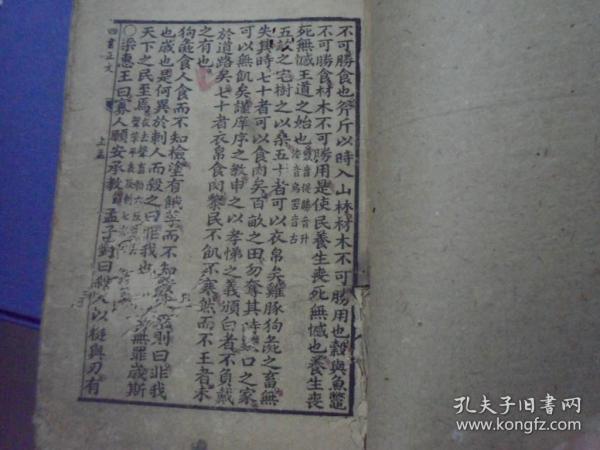 不可勝食也斧斤以時入山林材木不可勝用也穀與魚鼈
不可勝食材木不可勝用是使民養生喪死無憾也養生喪
死無憾王道之始也
五畝之宅樹之以桑五十者可以衣帛矣雞豚狗彘之畜無
失其時七十者可以食肉矣百畝之田勿奪其時口之家
可以無飢矣謹庠序之教申之以孝悌之義頒白者不負戴
於道路矣七十者衣帛食肉黎民不飢不寒然而不王者未
之有也
狗彘食人食而不知檢塗有餓莩而不知發人死則曰非我
也歲也是何異於刺人而殺之曰非我也兵也王無罪歲斯
天下之民至焉
〇梁惠王曰寡人願安承教 孟子對曰殺人以梃與刃有
四書正文
上孟
孔夫子旧書网
www.kongfz.com